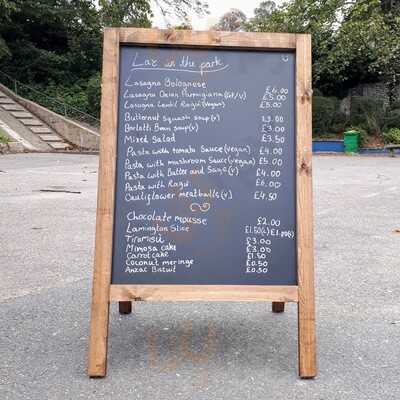 Laz in the park
Lasagna Bolognese £6.00
Lasagna Onion Parmigiana (GF/V) £5.00
Lasagna Lentil Ragù (vegan) £5.00
Butternut squash soup (v) £3.00
Borlotti Bean soup (v) £3.00
Mixed Salad £3.50
Pasta with tomato Sauce (vegan) £4.00
Pasta with mushroom Sauce (vegan) £5.00
Pasta with Butter and Sage (v) £4.00
Pasta with Ragù £6.00
Cauliflower meatballs (v) £4.50
Chocolate mousse £2.00
Lamington Slice £1.50(L) £1.00(s)
Tiramisù £3.00
Mimosa cake £3.00
Carrot cake £1.50
Coconut meringe £0.50
Anzac Biscuit £0.50